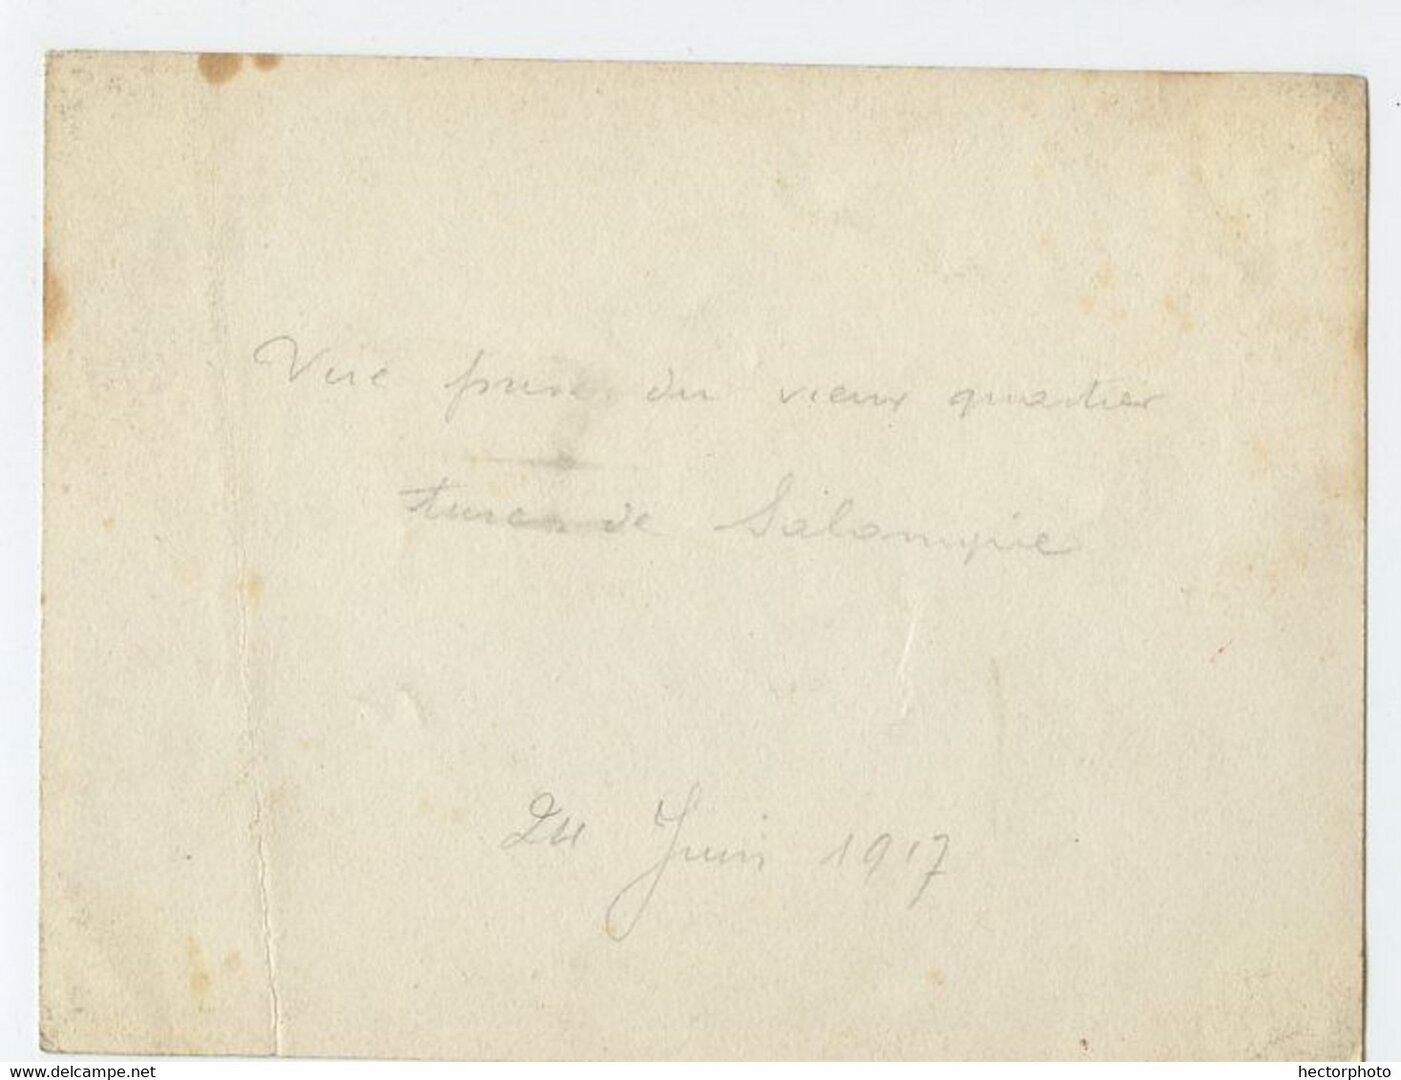 Vue prise du vieux quartier
turc de Salonique
24 Juin 1917
delcampe.net
hectorphoto